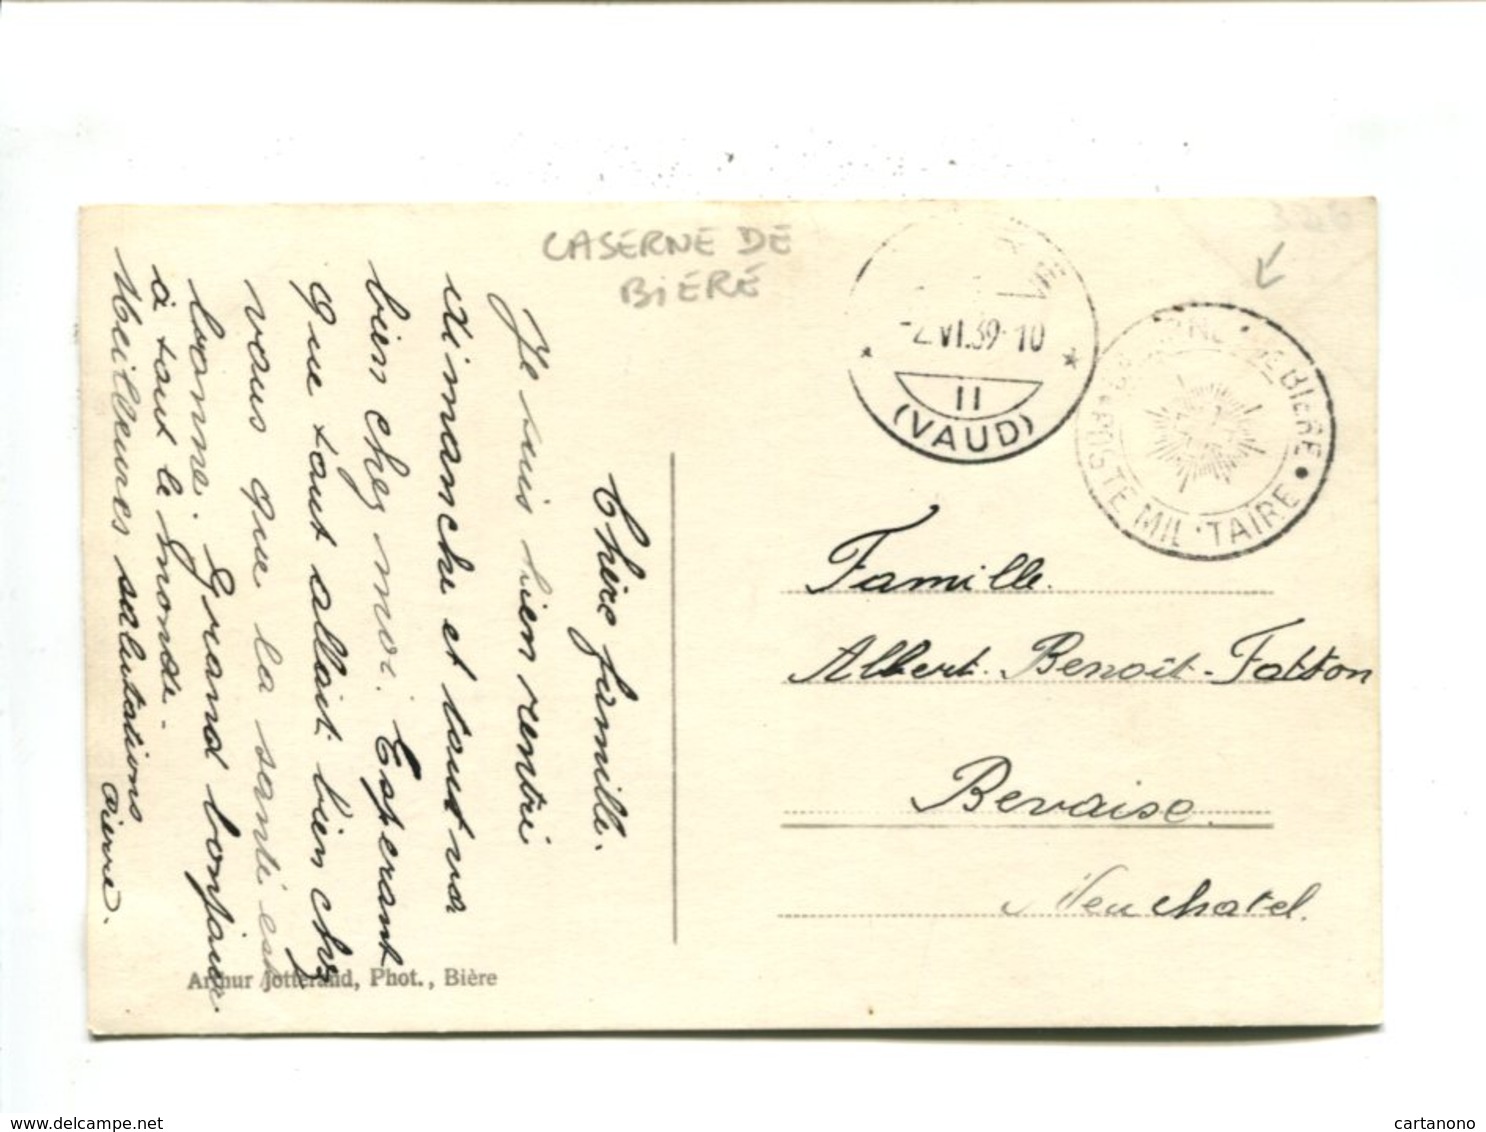 CASERNE DE
BIÈRE
326
-2.VI.39-10
II
(VAUD)
DE BIÈRE
POSTE MILITAIRE
Chère famille.
Je suis bien rentré
dimanche et tout va
bien chez moi. Esperant
que tout allait bien chez
vous que la santé est
bonne. Grand bonjour
à tout le monde.
Meilleures salutations
Pierre.
Famille.
Albert Benoît-Fatton
Bevaise.
Neuchatel.
Arthur Jotterand, Phot., Bière
www.delcampe.net
cartanono